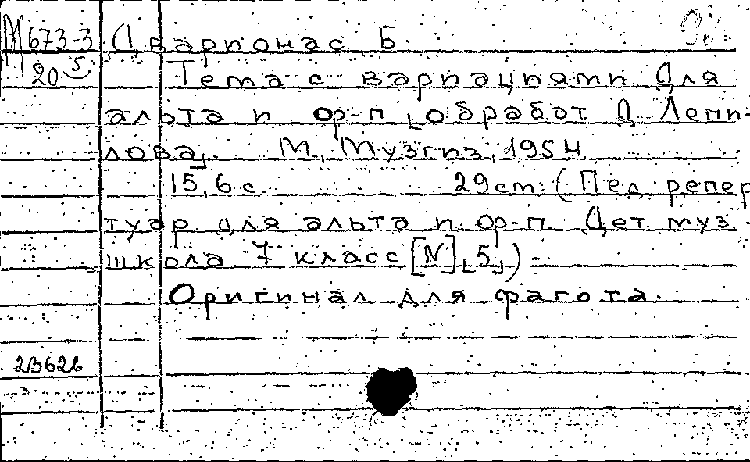 М673-3 Дварионас Б
20 5 Тема с вариациями для
альта и ф-п [обработ Д Лепи-
лова]. М, Музгиз, 1954
15,6 с. 29 cm. (Пед репер
туар для альта и ф-п Дет муз
школа 7 класс [N] [5])
Оригинал для фагота.
2В626